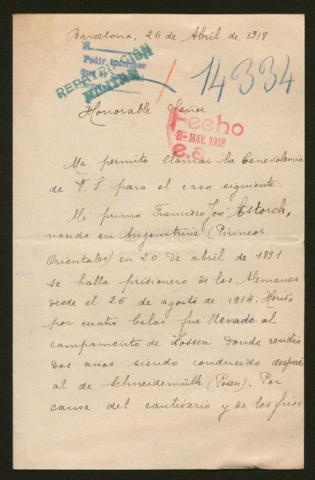 Barcelona, 26 de Abril de 1918
R.
Pedir informes
REPATRIACIÓN
MILITAR
/ 14334
Honorable Señor
Fecho
8-MAY.1918
e.s.
Me permito llamar la benevolencia
de V. S para el caso siguiente.
Mi primo Francisco José Astorch,
nacido en Angoustrine (Pirineos
Orientales) en 20 de abril de 1891
se halla prisionero de los Alemanes
desde el 26 de agosto de 1914. Herido
por cuatro balas fue llevado al
campamento de Zossen donde residió
dos años siendo conducido después
al de Schneidemülh (Posen). Por
causa del cautiverio y de los frios